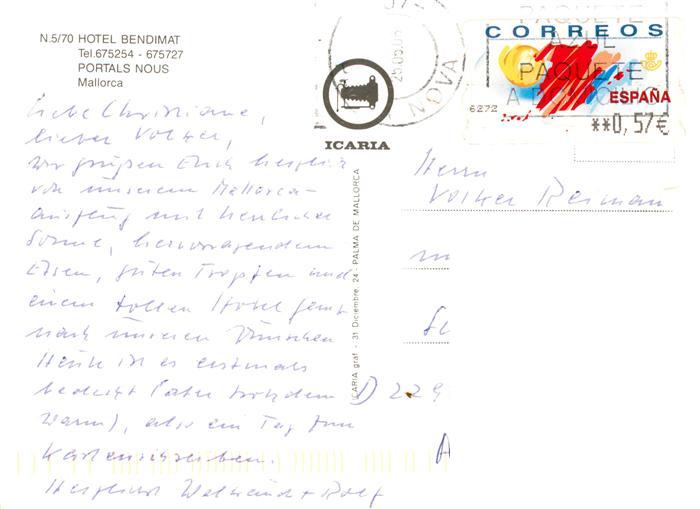 N.5/70 HOTEL BENDIMAT
Tel.675254 - 675727
PORTALS NOUS
Mallorca
Liebe Christiane,
lieber Volker,
wir grüßen Euch herzlich
von unserem Mallorca-
ausflug mit herrlicher
Sonne, hervorragendem
Essen, guten Tropfen und
einem tollen Hotel ganz
nach unseren Wünschen
Heute ist es erstmals
bedeckt (aber trotzdem
warm), also ein Tag zum
Kartenschreiben.
Herzlichst + Rolf
ICARIA
ICARIA graf. - 31 Diciembre, 24 - PALMA DE MALLORCA
25.05.05
NOVA
CORREOS
AZUL
PAQUETE
PAQUETE
ESPAÑA
6272
**0,57€
Herrn
Volker Reimann
D 229